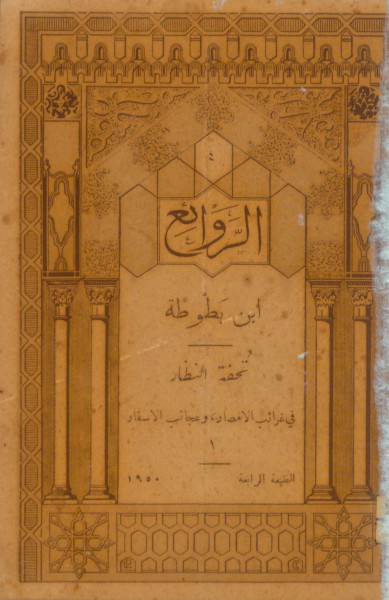 ٤
الروائع
ابن بطوطة
تحفة النظار
في غرائب الامصار، وعجائب الاسفار
١
الطبعة الرابعة ١٩٥٠